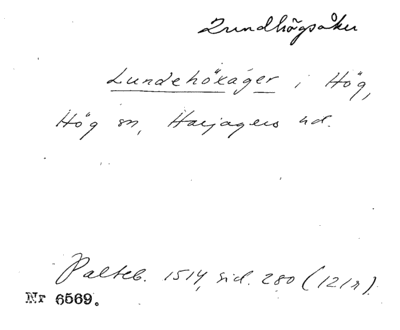 Lundhögsåker
Lundehökäger i Hög,
Hög sn, Harjagers hd.
Palteb. 1514, sid. 280 (121r).
Nr 6569.